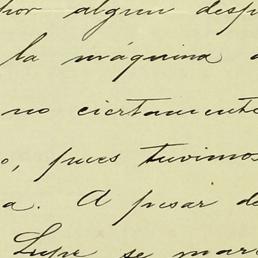 por algun desp
la máquina a
no ciertamente
o, pues tuvimos
a. A pesar de
Lupe se mar